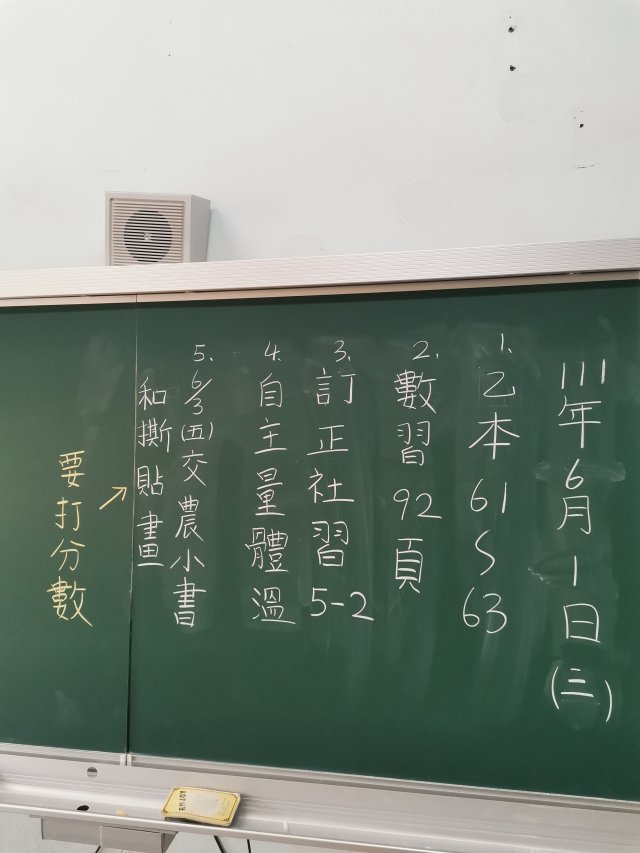 111年6月1日(三)
1.乙本61~63
2.數習92頁
3.訂正社習5-2
4.自主量體溫
5.6/3(五)交農小書
和撕貼畫
要打分數